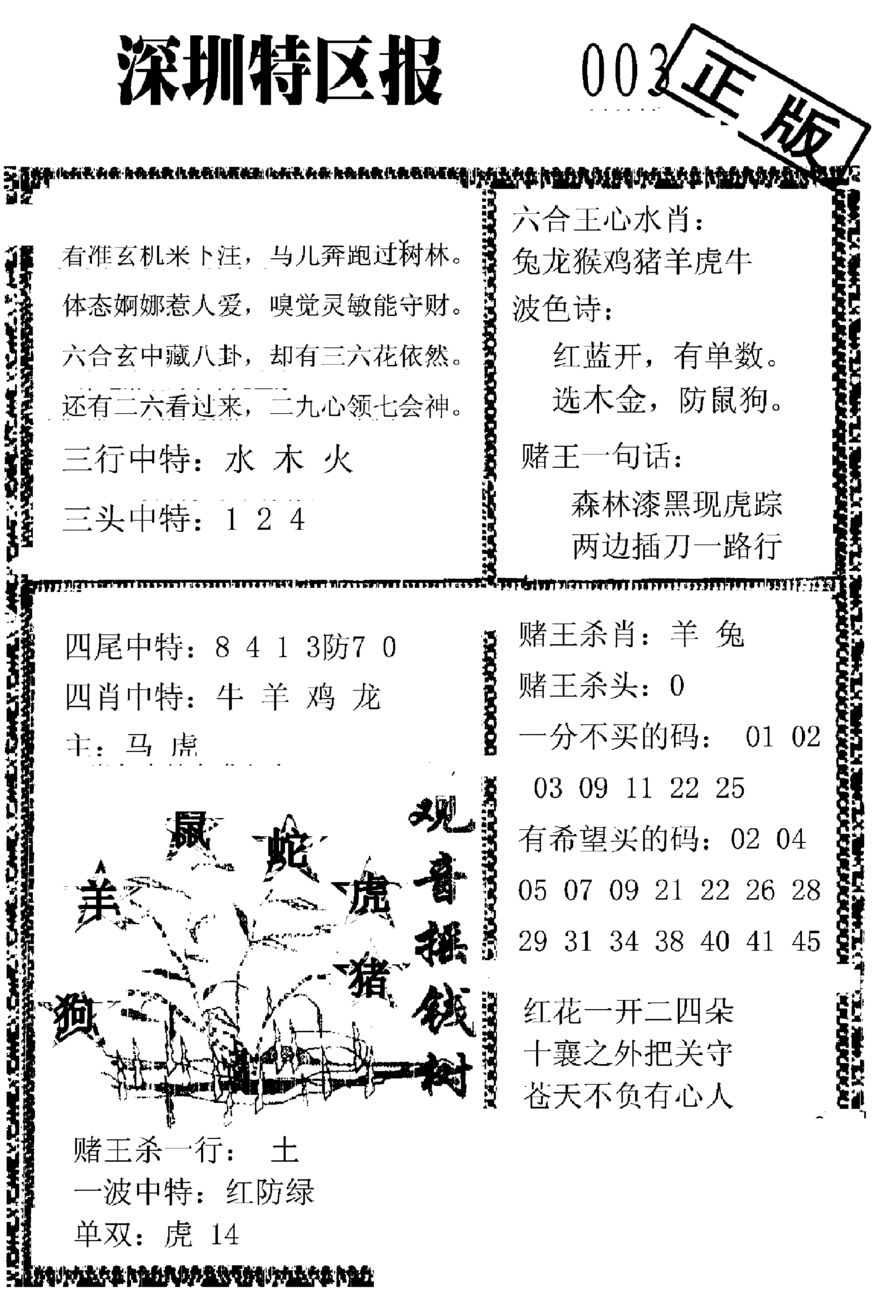 深圳特区报
003
正版
看准玄机来下注，马儿奔跑过树林。
体态婀娜惹人爱，嗅觉灵敏能守财。
六合玄中藏八卦，却有三六花依然。
还有二六看过来，二九心领七会神。
三行中特：水 木 火
三头中特：1 2 4
六合王心水肖：
兔龙猴鸡猪羊虎牛
波色诗：
红蓝开，有单数。
选木金，防鼠狗。
赌王一句话：
森林漆黑现虎踪
两边插刀一路行
四尾中特：8 4 1 3防7 0
四肖中特：牛 羊 鸡 龙
主：马 虎
鼠
蛇
羊
虎
猪
狗
观音摇钱树
赌王杀一行： 土
一波中特：红防绿
单双：虎 14
赌王杀肖：羊 兔
赌王杀头：0
一分不买的码： 01 02
03 09 11 22 25
有希望买的码：02 04
05 07 09 21 22 26 28
29 31 34 38 40 41 45
红花一开二四朵
十襄之外把关守
苍天不负有心人